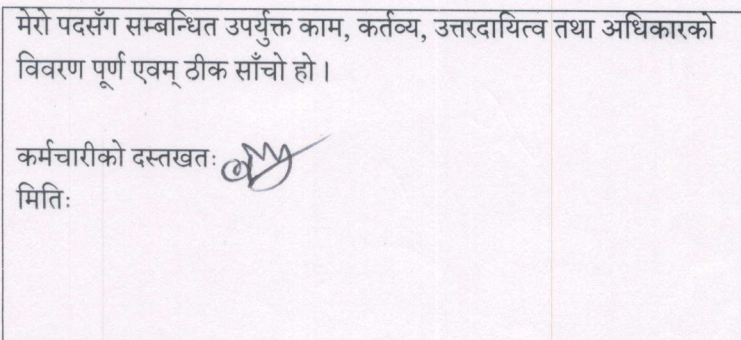 मेरो पदसँग सम्बन्धित उपर्युक्त काम, कर्तव्य, उत्तरदायित्व तथा अधिकारको
विवरण पूर्ण एवम् ठीक साँचो हो।
कर्मचारीको दस्तखतः
मितिः